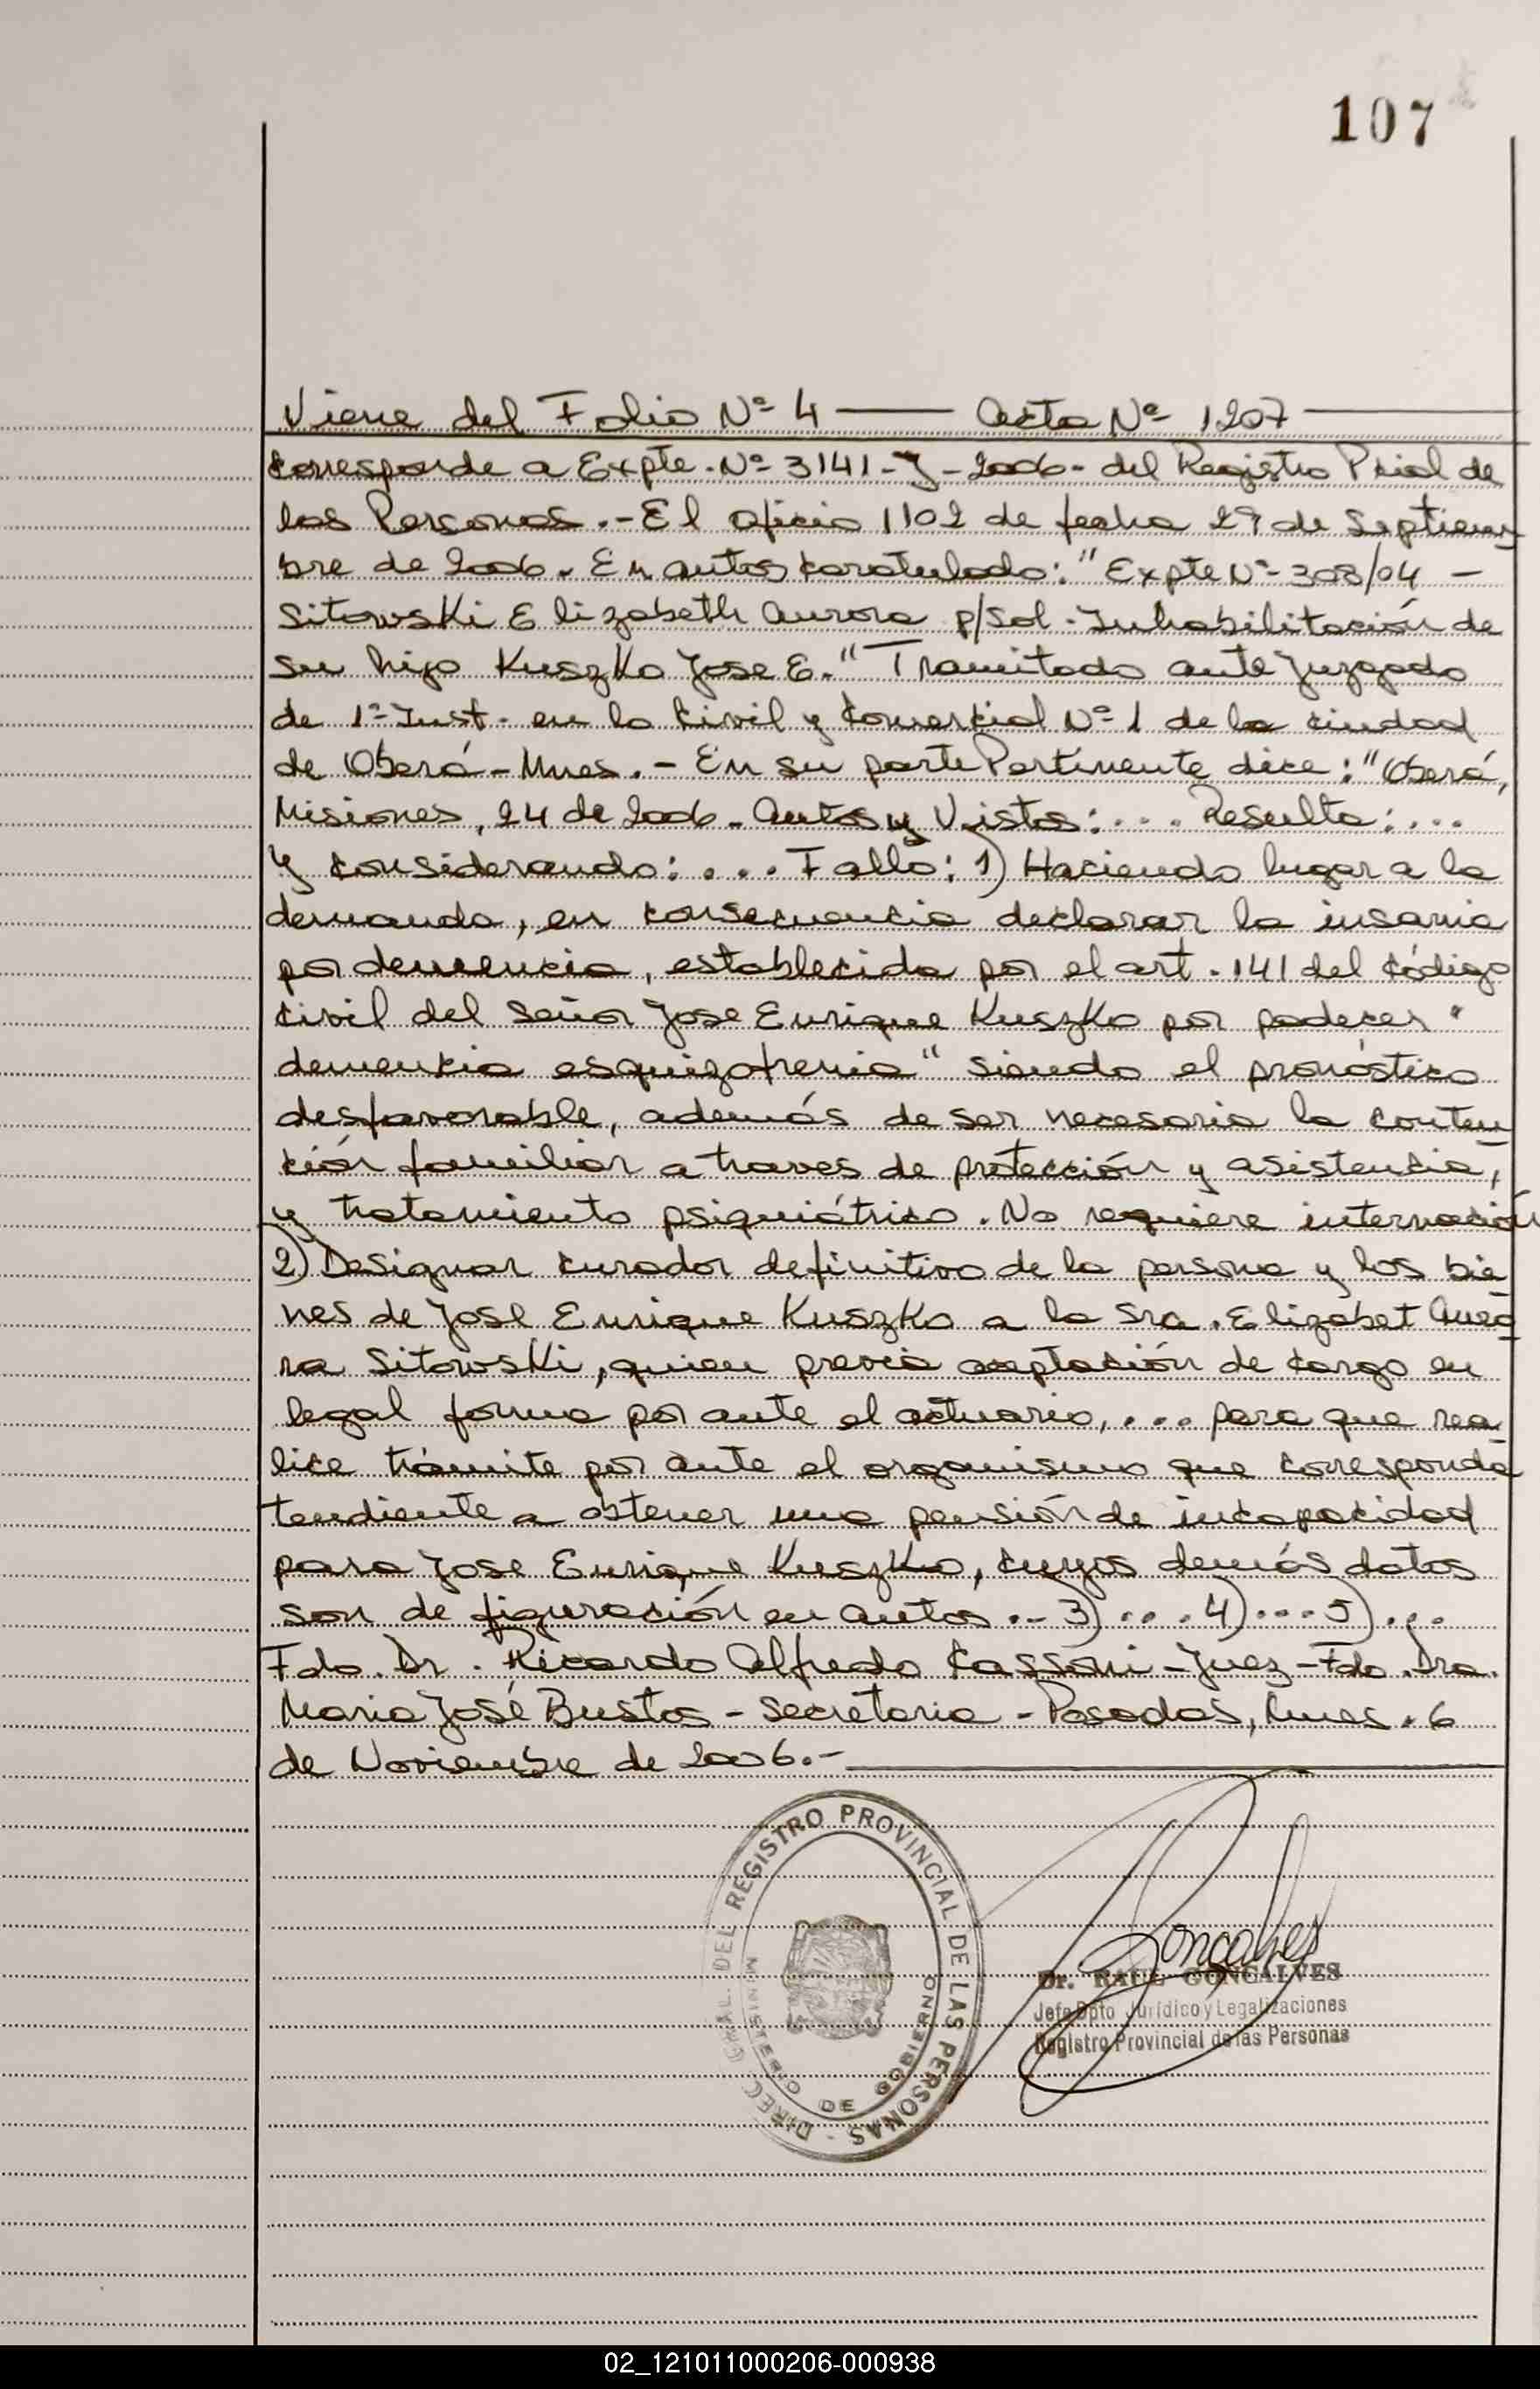 107
Viene del Folio Nº 4 —— Acta Nº 1207 ——
Corresponde a Expte. Nº 3141-J-2006- del Registro Pcial de
las Personas.- El oficio 1102 de fecha 29 de Septiem
bre de 2006. En autos caratulado: "Expte Nº 308/04 -
Sitowski Elizabeth Aurora p/Sol. Inhabilitación de
su hijo Kuszko Jose E." Tramitado ante Juzgado
de 1ª Inst. en lo Civil y Comercial Nº 1 de la ciudad
de Oberá - Mnes.- En su parte Pertinente dice: "Oberá,
Misiones, 24 de 2006. Autos y Vistos: .... Resulta: ...
Y considerando: .... Fallo: 1) Haciendo lugar a la
demanda, en consecuencia declarar la insania
por demencia, establecida por el art. 141 del código
civil del señor Jose Enrique Kuszko por padecer "
demencia esquizofrenia" siendo el pronóstico
desfavorable, además de ser necesaria la conten
ción familiar a traves de protección y asistencia,
y tratamiento psiquiátrico. No requiere internación
2) Designar curador definitivo de la persona y los bie
nes de Jose Enrique Kuszko a la Sra. Elizabet Auro
ra Sitowski, quien previa aceptación de cargo en
legal forma por ante el actuario, ... para que rea
lice trámite por ante el organismo que corresponda
tendiente a obtener una pensión de incapacidad
para Jose Enrique Kuszko, cuyos demás datos
son de figuración en autos .- 3) .... 4) .... 5) ...
Fdo. Dr. Ricardo Alfredo Cassoni - Juez - Fdo. Dra.
Maria José Bustos - Secretaria - Posadas, Mnes. 6
de Noviembre de 2006.-
DIREC. GRAL. DEL REGISTRO PROVINCIAL DE LAS PERSONAS -
MINISTERIO DE GOBIERNO
Goncalves
Dr. RAUL GONCALVES
Jefe Dpto Jurídico y Legalizaciones
Registro Provincial de las Personas
02_121011000206-000938